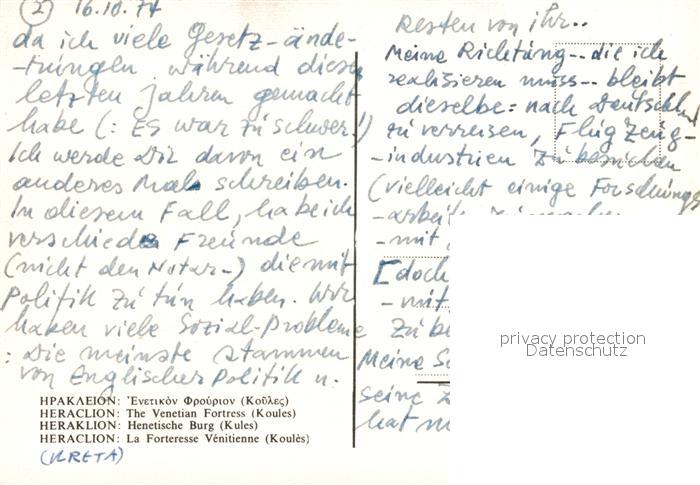 2 16.10.74
da ich viele Gesetz-ände-
-rungen während dieser
letzten Jahren gemacht
habe (: Es war zu schwer!)
Ich werde Dir davon ein
anderes Mal schreiben.
In diesem Fall, habe ich
verschiede Freunde
(nicht den Notar-) die mit
Politik zu tun haben. Wir
haben viele Sozial-Probleme
: Die meinste stammen
von Englischer Politik u.
ΗΡΑΚΛΕΙΟΝ: Ἑνετικὸν Φρούριον (Κοῦλες)
HERACLION: The Venetian Fortress (Koules)
HERAKLION: Henetische Burg (Kules)
HERACLION: La Forteresse Vénitienne (Koulès)
(KRETA)
Resten von ihr..
Meine Richtung-- die ich
realisieren muss-- bleibt
dieselbe: nach Deutschland
zu verreisen, Flugzeug-
-industrien zu besuchen
(vielleicht einige Forschungs
-arbeit
-mit
[doch
-mit
Zu be
Meine S
seine Z
hat m
privacy protection
Datenschutz